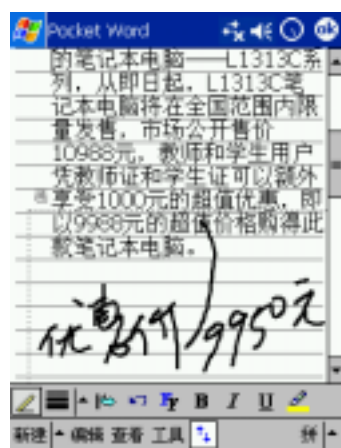 Pocket Word ok
的笔记本电脑——L1313C系
列，从即日起，L1313C笔
记本电脑将在全国范围内限
量发售，市场公开售价
10988元，教师和学生用户
凭教师证和学生证可以额外
享受1000元的超值优惠，即
以9988元的超值价格购得此
款笔记本电脑。
优惠价9950元
B I U
新建 编辑 查看 工具 拼